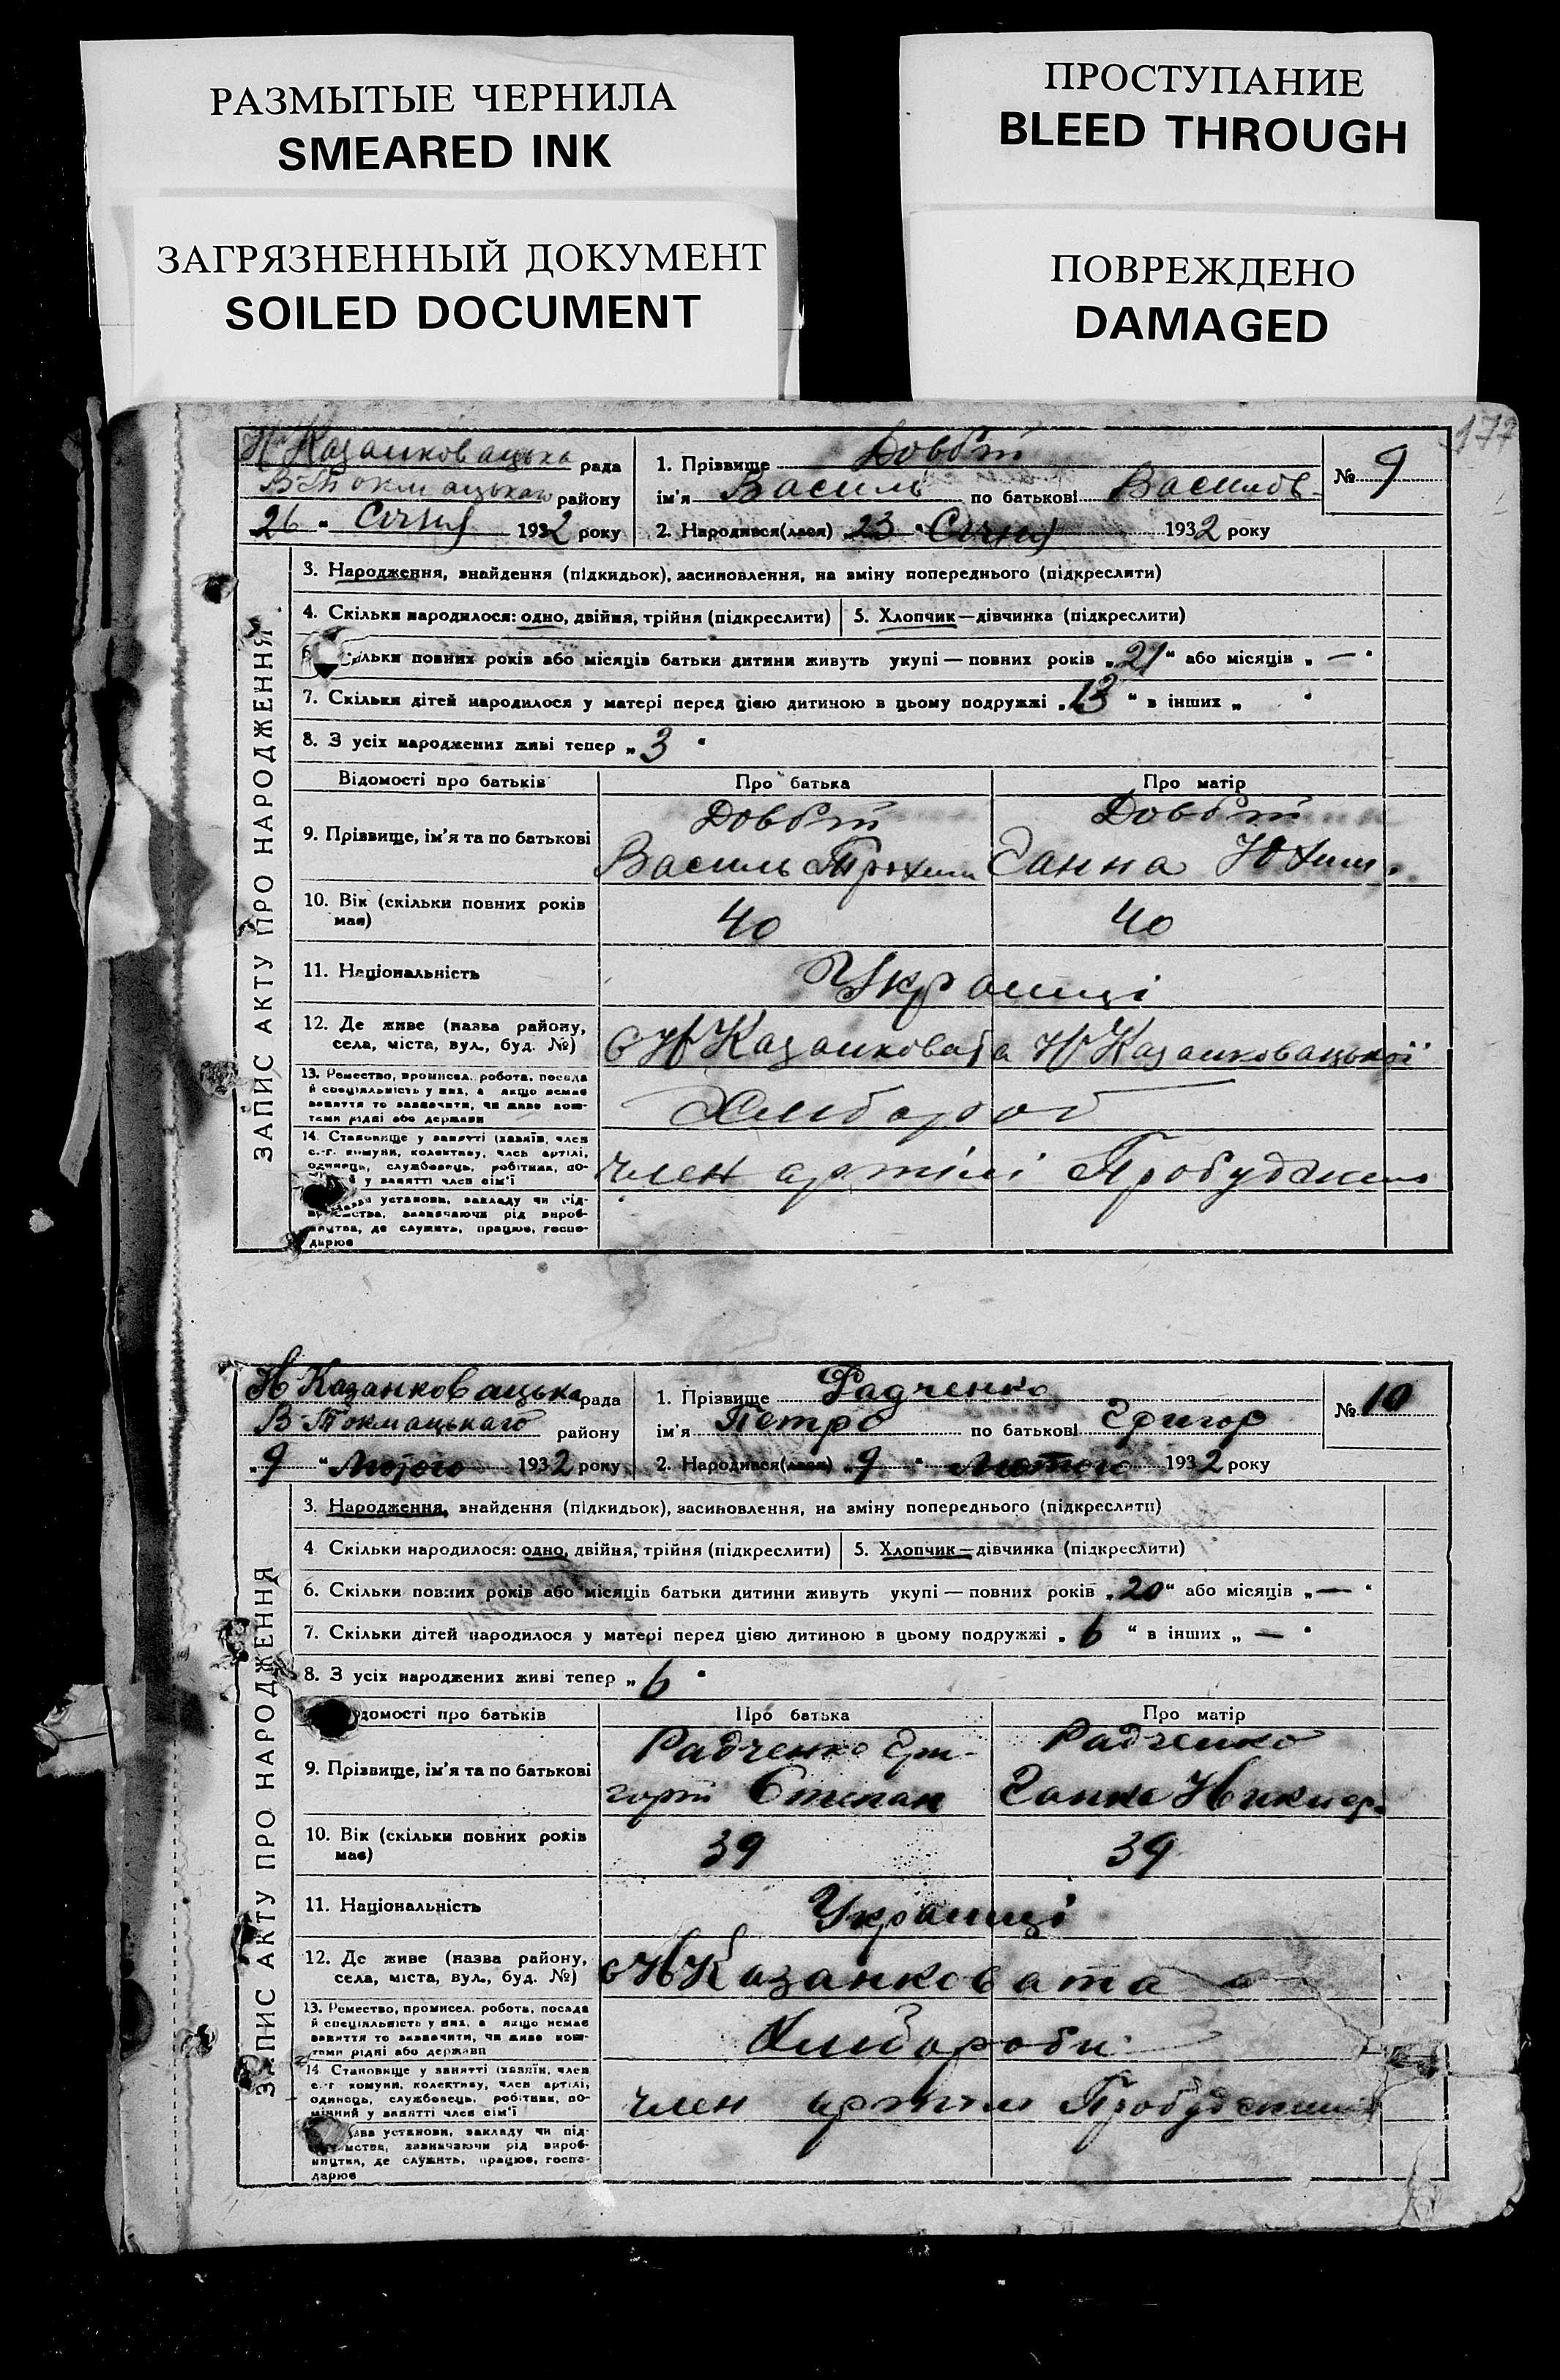 РАЗМЫТЫЕ ЧЕРНИЛА
SMEARED INK
ПРОСТУПАНИЕ
BLEED THROUGH
ЗАГРЯЗНЕННЫЙ ДОКУМЕНТ
SOILED DOCUMENT
ПОВРЕЖДЕНО
DAMAGED
177
ЗАПИС АКТУ ПРО НАРОДЖЕННЯ
Н Казанковацька рада
В Токмацького району
26 " Січня 1932 року
1. Прізвище
ім'я Василь по батькові Васильов
№ 9
2. Народився(лася) „ 23 " Січня 1932 року
3. Народження, знайдення (підкидьок), засиновлення, на зміну попереднього (підкреслити)
4. Скільки народилося: одно, двійня, трійня (підкреслити) 5. Хлопчик—дівчинка (підкреслити)
6. Скільки повних років або місяців батьки дитини живуть укупі — повних років „ 21 " або місяців „ — "
7. Скільки дітей народилося у матері перед цією дитиною в цьому подружжі „ 13 " в інших „ "
8. З усіх народжених живі тепер „ 3 "
Відомості про батьків Про батька Про матір
9. Прізвище, ім'я та по батькові
Василь Ганна
10. Вік (скільки повних років має) 40 40
11. Національність Українці
12. Де живе (назва району, села, міста, вул., буд. №) с Н Казанковата Н Казанковацької
13. Ремество, промисел, робота, посада й спеціальність у них, а якщо немає заняття то зазначити, чи живе коштами рідні або держави
Хлібороб
14. Становище у занятті (хазяїн, член с.-г. комуни, колективу, член артілі, одинець, службовець, робітник, помічний у занятті член сім'ї
член артілі Пробуджен
установи, закладу чи підприємства, зазначаючи рід виробництва, де служить, працює, господарює
ЗАПИС АКТУ ПРО НАРОДЖЕННЯ
Н Казанковацька рада
В Токмацького району
„ 9 " Лютого 1932 року
1. Прізвище Радченко
ім'я Петро по батькові Григор
№ 10
2. Народився(лася) „ 9 " Лютого 1932 року
3. Народження, знайдення (підкидьок), засиновлення, на зміну попереднього (підкреслити)
4. Скільки народилося: одно, двійня, трійня (підкреслити) 5. Хлопчик—дівчинка (підкреслити)
6. Скільки повних років або місяців батьки дитини живуть укупі — повних років „ 20 " або місяців „ — "
7. Скільки дітей народилося у матері перед цією дитиною в цьому подружжі „ 6 " в інших „ — "
8. З усіх народжених живі тепер „ 6 "
Відомості про батьків Про батька Про матір
9. Прізвище, ім'я та по батькові
Радченко Гри- Радченко
горій Степан Ганна Никиер.
10. Вік (скільки повних років має) 39 39
11. Національність Українці
12. Де живе (назва району, села, міста, вул., буд. №) с Н Казанковата
13. Ремество, промисел, робота, посада й спеціальність у них, а якщо немає заняття то зазначити, чи живе коштами рідні або держави
Хлібороби
14. Становище у занятті (хазяїн, член с.-г. комуни, колективу, член артілі, одинець, службовець, робітник, помічний у занятті член сім'ї
член артіли
установи, закладу чи підприємства, зазначаючи рід виробництва, де служить, працює, господарює